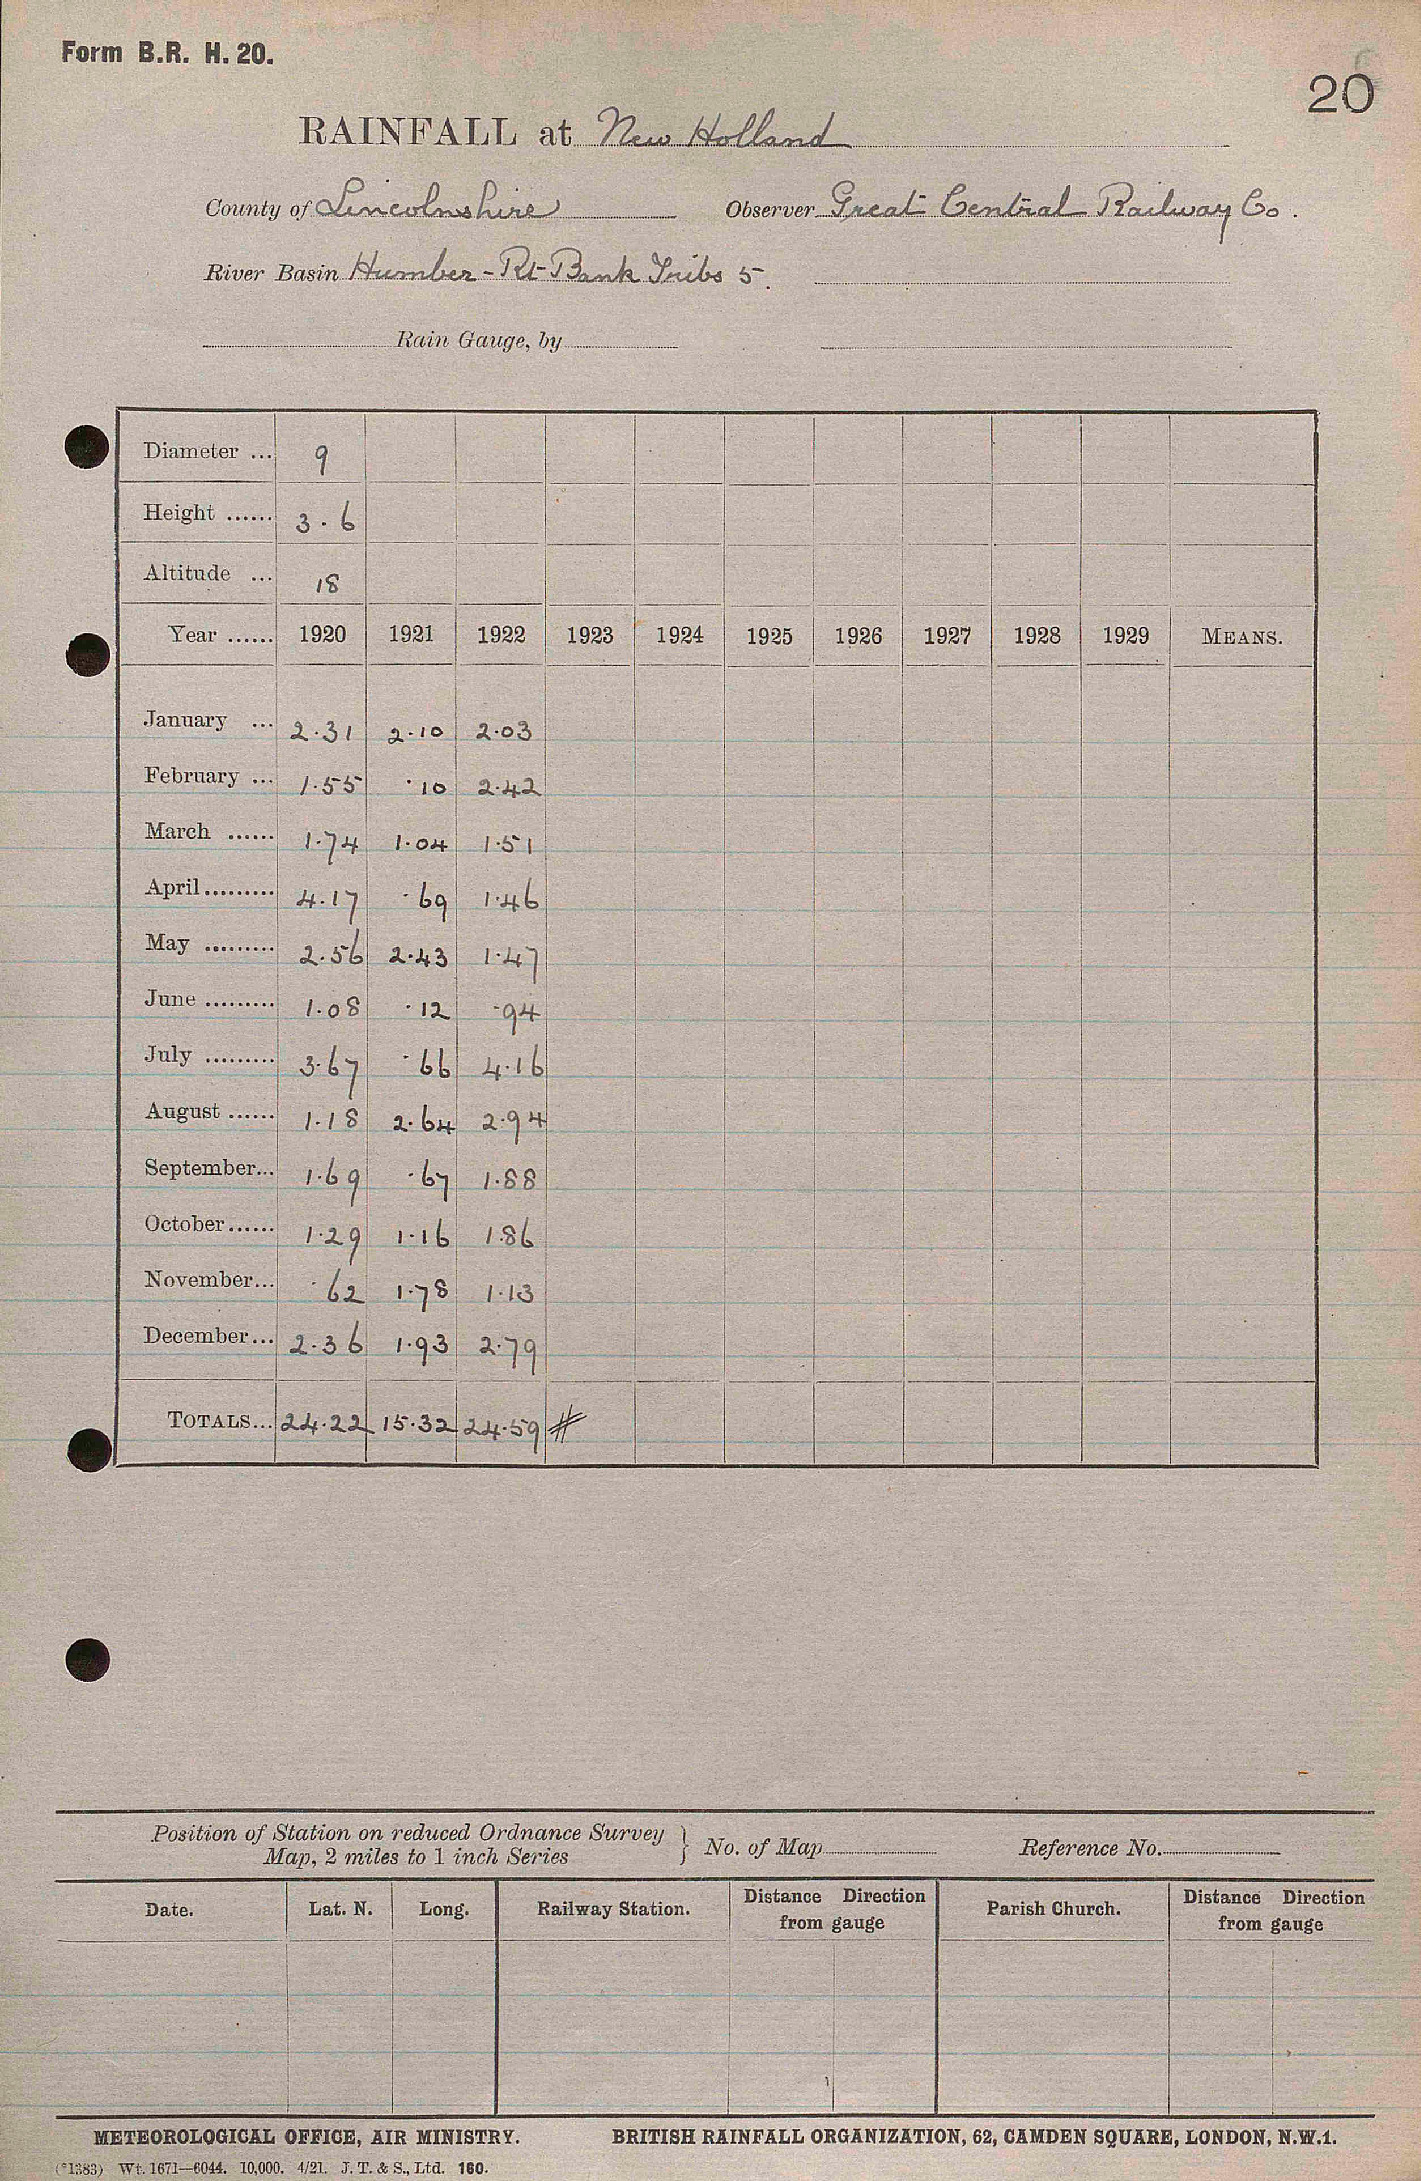 Form B.R. H. 20.
20
RAINFALL at New Holland
County of Lincolnshire Observer Great Central Railway Co.
River Basin Humber - Rt Bank Tribs 5.
Rain Gauge, by
Diameter ... 9
Height ...... 3.6
Altitude ... 18
Year ...... 1920 1921 1922 1923 1924 1925 1926 1927 1928 1929 MEANS.
January ... 2.31 2.10 2.03
February ... 1.55 .10 2.42
March ...... 1.74 1.04 1.51
April ......... 4.17 .69 1.46
May ......... 2.56 2.43 1.47
June ......... 1.08 .12 .94
July ......... 3.67 .66 4.16
August ...... 1.18 2.64 2.94
September... 1.69 .67 1.88
October...... 1.29 1.16 1.86
November... .62 1.78 1.13
December... 2.36 1.93 2.79
TOTALS... 24.22 15.32 24.59 #
Position of Station on reduced Ordnance Survey
Map, 2 miles to 1 inch Series } No. of Map Reference No.
Date. Lat. N. Long. Railway Station. Distance Direction from gauge Parish Church. Distance Direction from gauge
METEOROLOGICAL OFFICE, AIR MINISTRY. BRITISH RAINFALL ORGANIZATION, 62, CAMDEN SQUARE, LONDON, N.W.1.
(*1383) Wt. 1671—6044. 10,000. 4/21. J. T. & S., Ltd. 160.